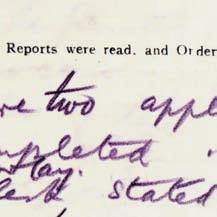 Reports were read. and Order
re two appl
mpleted
May.
lerk stated